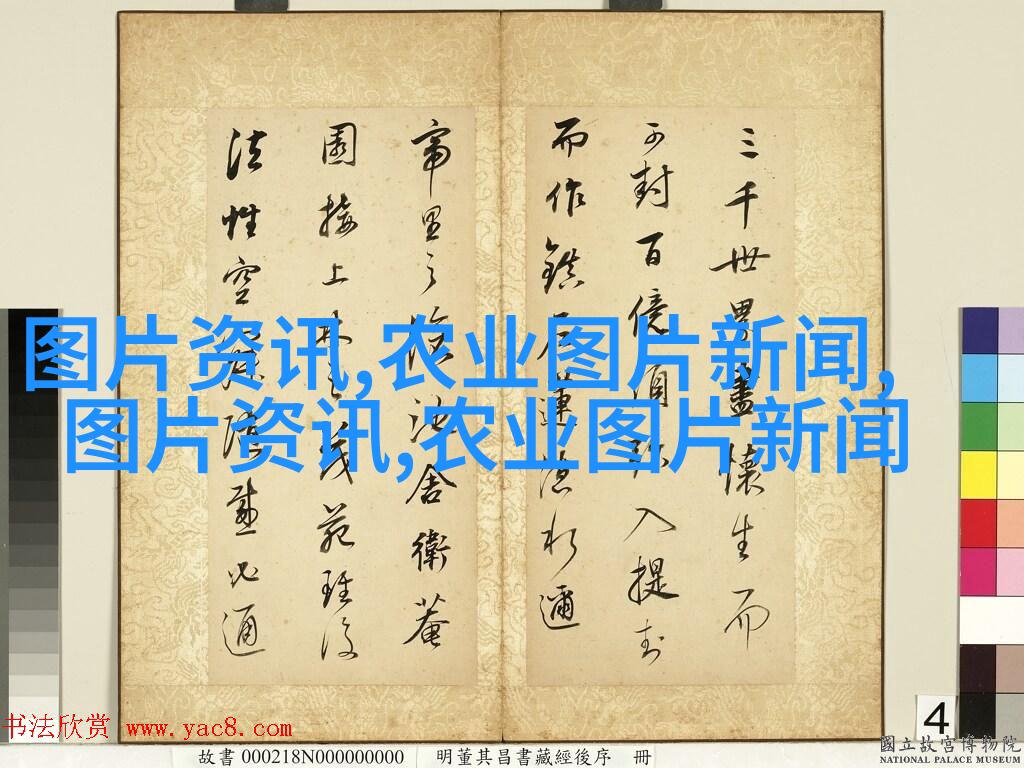 三千世界盡懷生而
可封百億須弥入提封
而作鎮蓮於邇
帝里之舍衛菴
園接上林之茂苑
法性空障通
图片资讯,农业图片新闻,
图片资讯,农业图片新闻
书法欣赏 www.yac8.com
故書 000218N000000000 明董其昌書藏經後序 冊
4
國立故宮博物院
NATIONAL PALACE MUSEUM